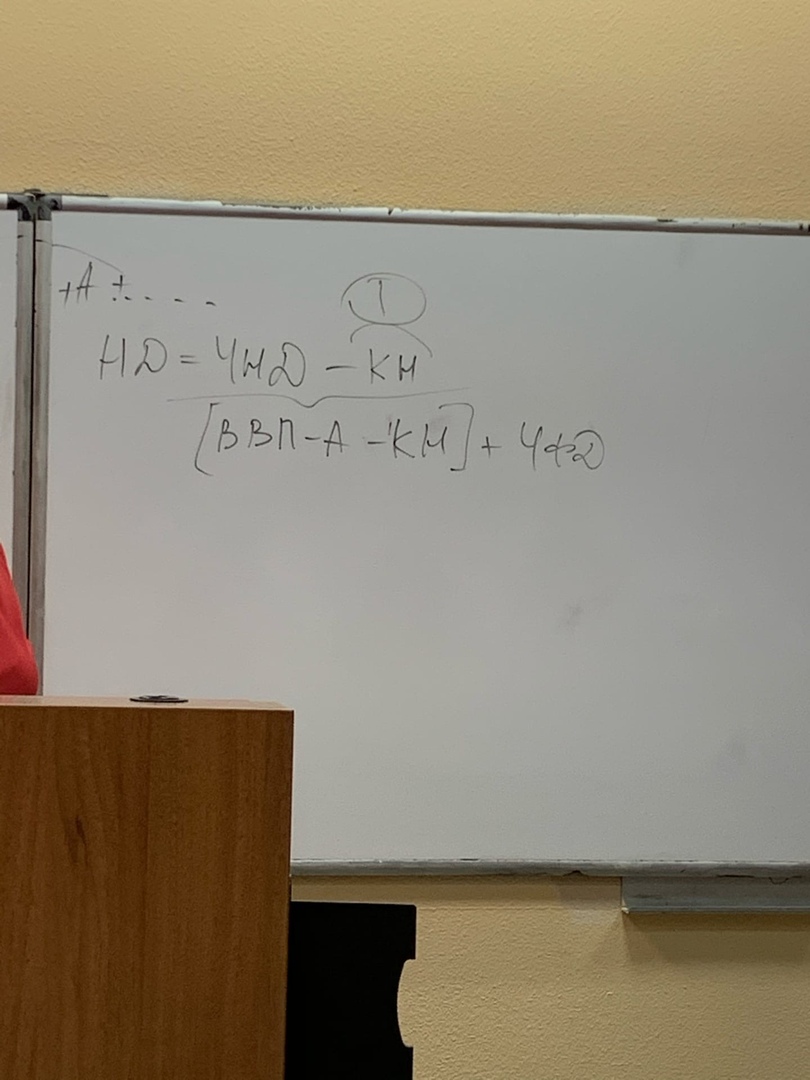 +A + . . . .
T
НД = ЧНД – КН
[ВВП – А – КН] + ЧФД